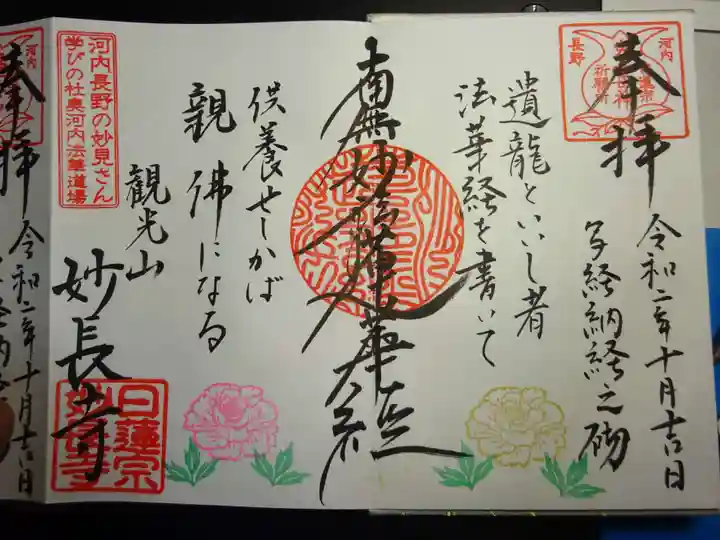 奉拝
河内
長野
祈願所
令和二年十月吉日
写経納経之砌
遺龍といいし者
法華経を書いて
南無妙法蓮華経
供養せしかば
親佛になる
観光山
妙長寺
日蓮宗
妙長寺
河内長野の妙見さん
学びの杜奥河内六華道場
奉拝
河内
令和二年十月吉日